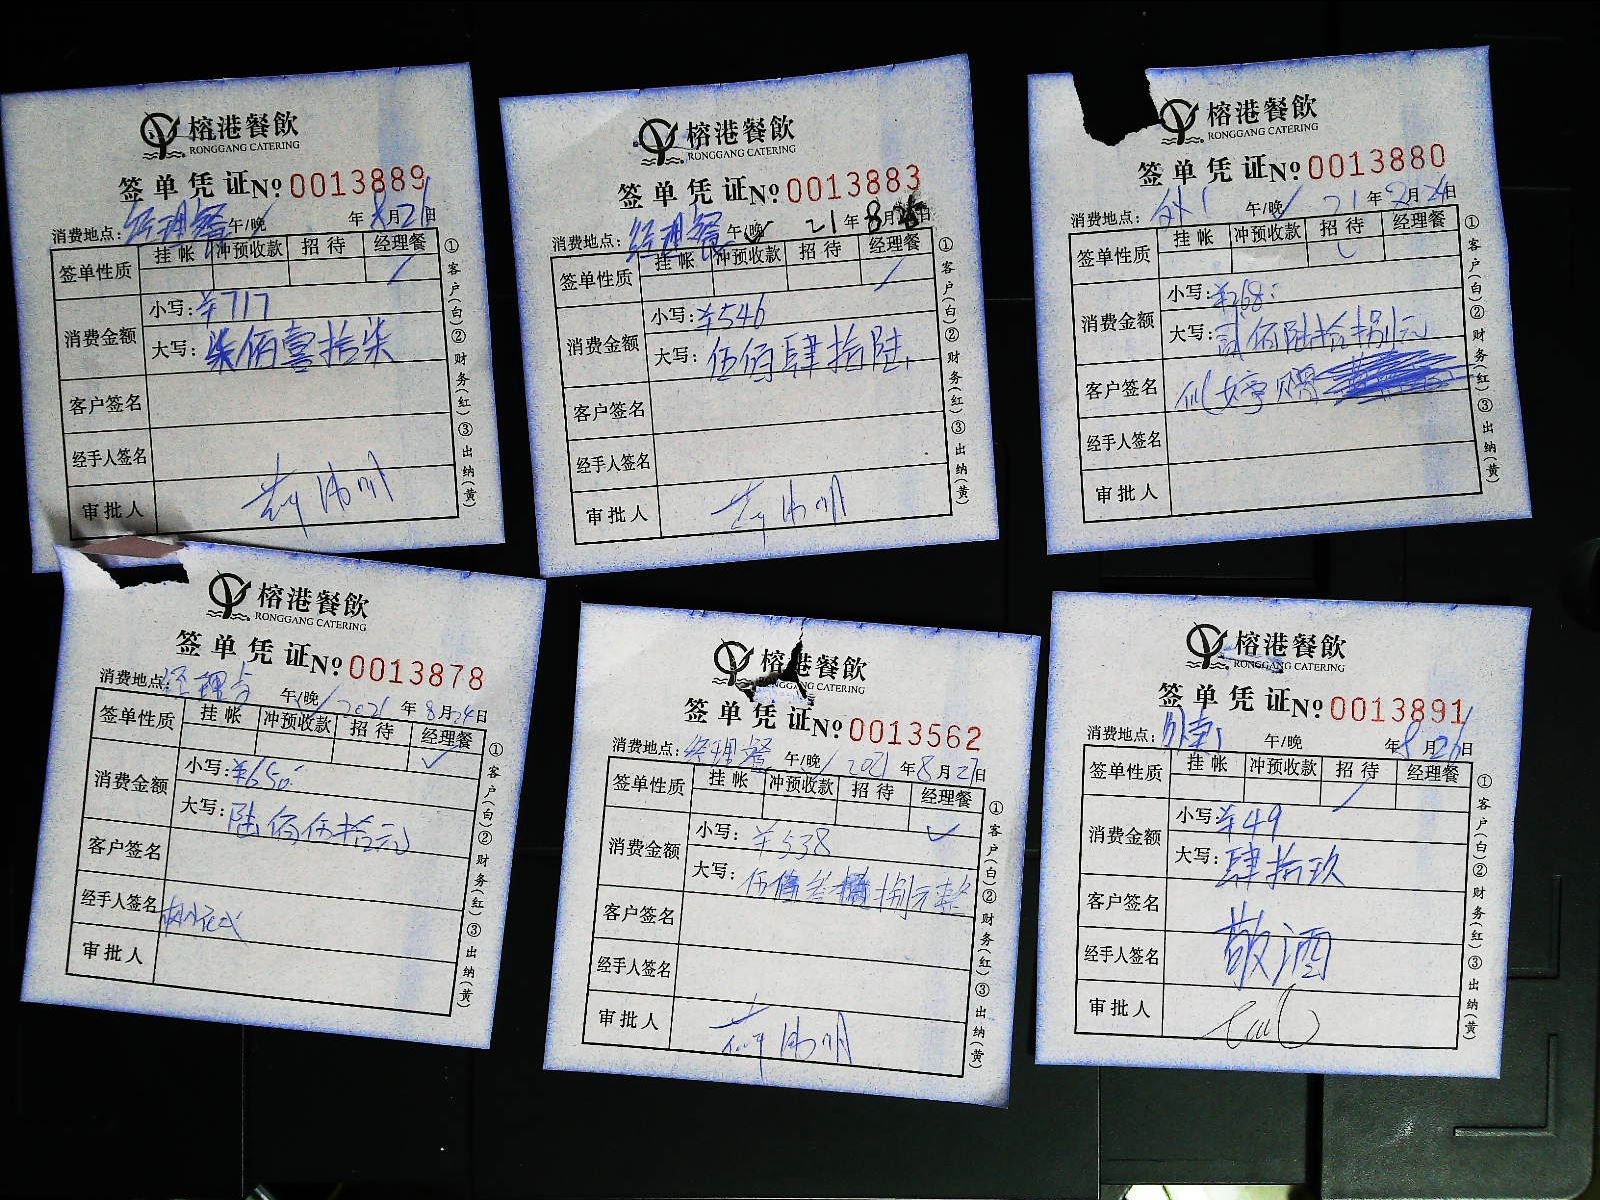 榕港餐飲
RONGGANG CATERING
签单凭证 No 0013889
消费地点: 经理餐 午/晚 年 8月26日
签单性质 挂帐 冲预收款 招待 经理餐 ✓
消费金额 小写: ¥717
大写: 柒佰壹拾柒
客户签名
经手人签名
审批人
①客户(白)②财务(红)③出纳(黄)
榕港餐飲
RONGGANG CATERING
签单凭证 No 0013883
消费地点: 经理餐 午/晚 ✓ 21年8月日
签单性质 挂帐 冲预收款 招待 经理餐 ✓
消费金额 小写: ¥546
大写: 伍佰肆拾陆
客户签名
经手人签名
审批人
①客户(白)②财务(红)③出纳(黄)
榕港餐飲
RONGGANG CATERING
签单凭证 No 0013880
消费地点: 午/晚 ✓ 21年月24日
签单性质 挂帐 冲预收款 招待 经理餐
消费金额 小写: ¥268
大写: 贰佰陆拾捌元
客户签名
经手人签名
审批人
①客户(白)②财务(红)③出纳(黄)
榕港餐飲
RONGGANG CATERING
签单凭证 No 0013878
消费地点: 经理 午/晚 ✓ 2021年8月24日
签单性质 挂帐 冲预收款 招待 经理餐 ✓
消费金额 小写: ¥650
大写: 陆佰伍拾元
客户签名
经手人签名
审批人
①客户(白)②财务(红)③出纳(黄)
榕港餐飲
RONGGANG CATERING
签单凭证 No 0013562
消费地点: 经理餐 午/晚 ✓ 2021年8月27日
签单性质 挂帐 冲预收款 招待 经理餐 ✓
消费金额 小写: ¥538
大写: 伍佰叁拾捌元整
客户签名
经手人签名
审批人
①客户(白)②财务(红)③出纳(黄)
榕港餐飲
RONGGANG CATERING
签单凭证 No 0013891
消费地点: 午/晚 年8月26日
签单性质 挂帐 冲预收款 招待 ✓ 经理餐
消费金额 小写: ¥49
大写: 肆拾玖
客户签名
经手人签名 敬酒
审批人
①客户(白)②财务(红)③出纳(黄)